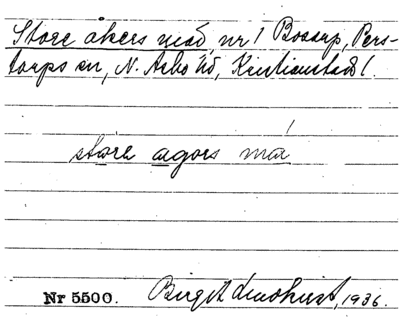 Store åkers mad, nr 1 Bosarp, Pers-
torps sn, N. Åsbo hd, Kristianstads l.
store agors ma
Nr 5500. Birgit Lindkvist, 1936.